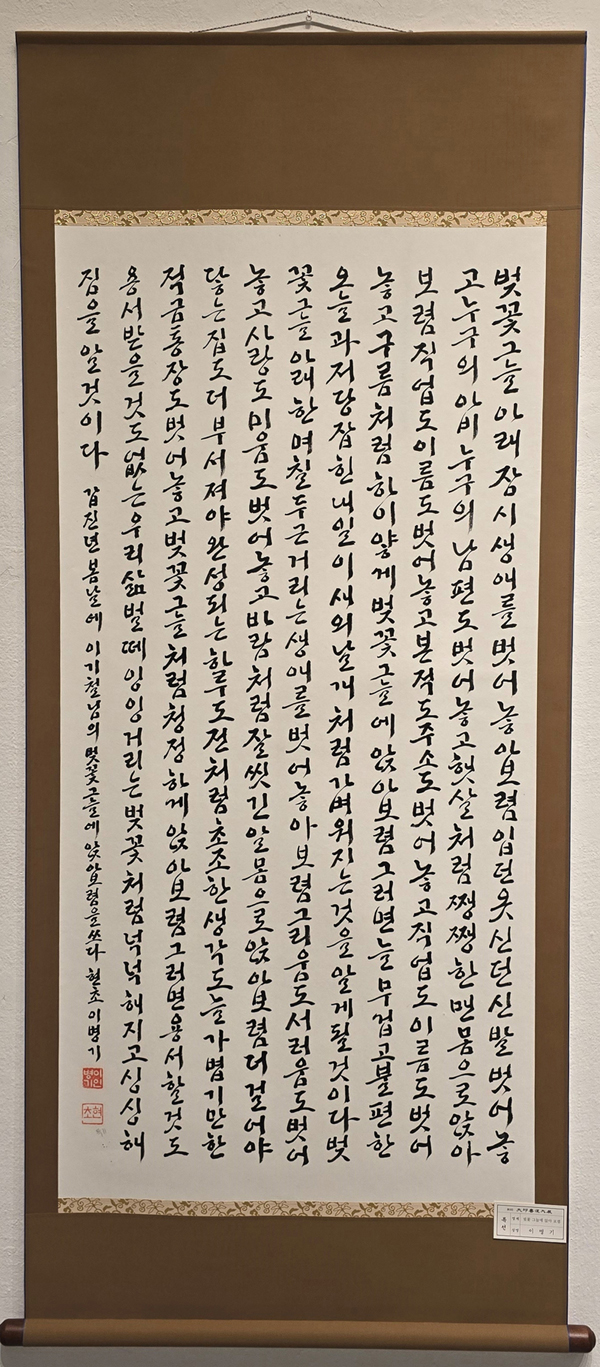 벚꽃그늘아래잠시생애를벗어놓아보렴입던옷신던신발벗어놓
고누구의아비누구의남편도벗어놓고햇살처럼쨍쨍한맨몸으로앉아
보렴직업도이름도벗어놓고본적도주소도벗어놓고직업도이름도벗어
놓고구름처럼하이얗게벚꽃그늘에앉아보렴그러면늘무겁고불편한
오늘과저당잡힌내일이새의날개처럼가벼워지는것을알게될것이다벚
꽃그늘아래한며칠두근거리는생애를벗어놓아보렴그리움도서러움도벗어
놓고사랑도미움도벗어놓고바람처럼잘씻긴알몸으로앉아보렴더걸어야
닿는집도더부서져야완성되는하루도전처럼초조한생각도늘가볍기만한
적금통장도벗어놓고벚꽃그늘처럼청정하게앉아보렴그러면용서할것도
용서받을것도없는우리삶벌떼잉잉거리는벚꽃처럼넉넉해지고싱싱해
짐을알것이다 갑진년봄날에이기철님의벚꽃그늘에앉아보렴을쓰다현초이병기
이병기인
현초
특선
명제 벚꽃 그늘에 앉아 보렴
성명 이병기